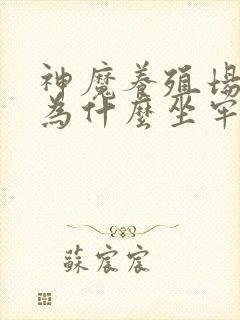 神魔養殖場
為什麼坐牢
蘇宸宸